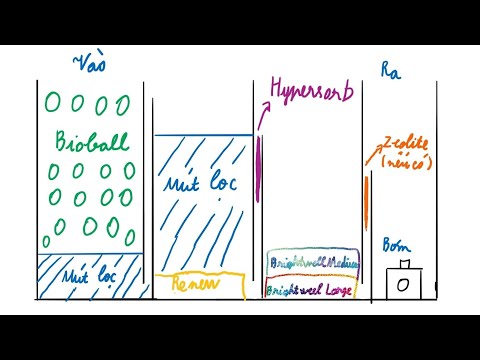 Vào
Bioball
Mút lọc
Mút lọc
Renew
Hypersorb
Brightwell Medium
Brightweel Large
Ra
Zeolite
(nếu có)
Bơm